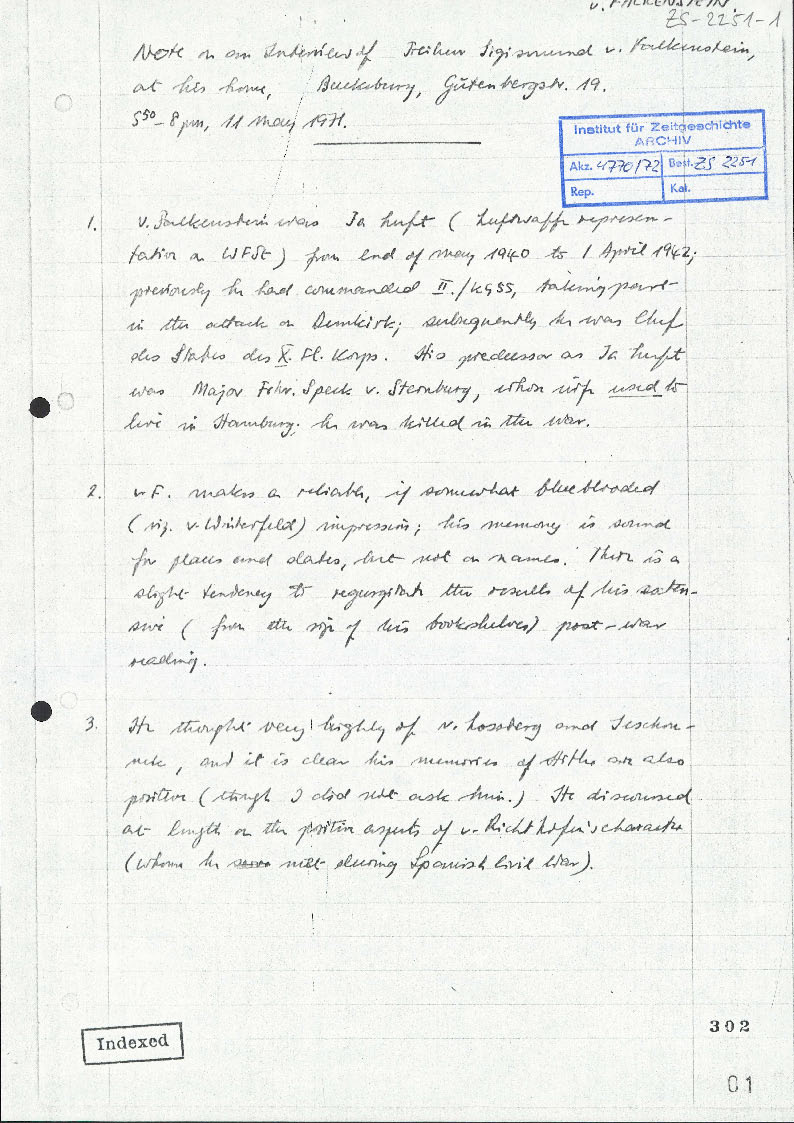 v. FALKENSTEIN.
ZS-2251-1
Note on an Interview of Freiherr Sigismund v. Falkenstein,
at his home, Buckeburg, Gutenbergstr. 19.
5⁵⁰ – 8 pm, 11 May 1971.
Institut für Zeitgeschichte
ARCHIV
Akz. 4770/72 Best. ZS 2251
Rep. Kat.
1. v. Falkenstein was Ia Luft (Luftwaffe represen-
tation on WFSt) from end of May 1940 to 1 April 1942;
previously he had commanded II./KG55, taking part
in the attack on Dunkirk; subsequently he was Chef
des Stabes des X. Fl. Korps. His predecessor as Ia Luft
was Major Frhr. Speck v. Sternburg, whose wife used to
live in Hamburg; he was killed in the war.
2. v F. makes a reliable, if somewhat blueblooded
(viz. v. Winterfeld) impression; his memory is sound
for places and dates, but not on names. There is a
slight tendency to regurgitate the results of his exten-
sive (from the size of his bookshelves) post-war
reading.
3. He thought very highly of v. Lossberg and Jeschon-
nek, and it is clear his memories of Hitler are also
positive (though I did not ask him.) He discoursed
at length on the positive aspects of v. Richthofen's character
(whom he met during Spanish Civil War).
Indexed
302
01